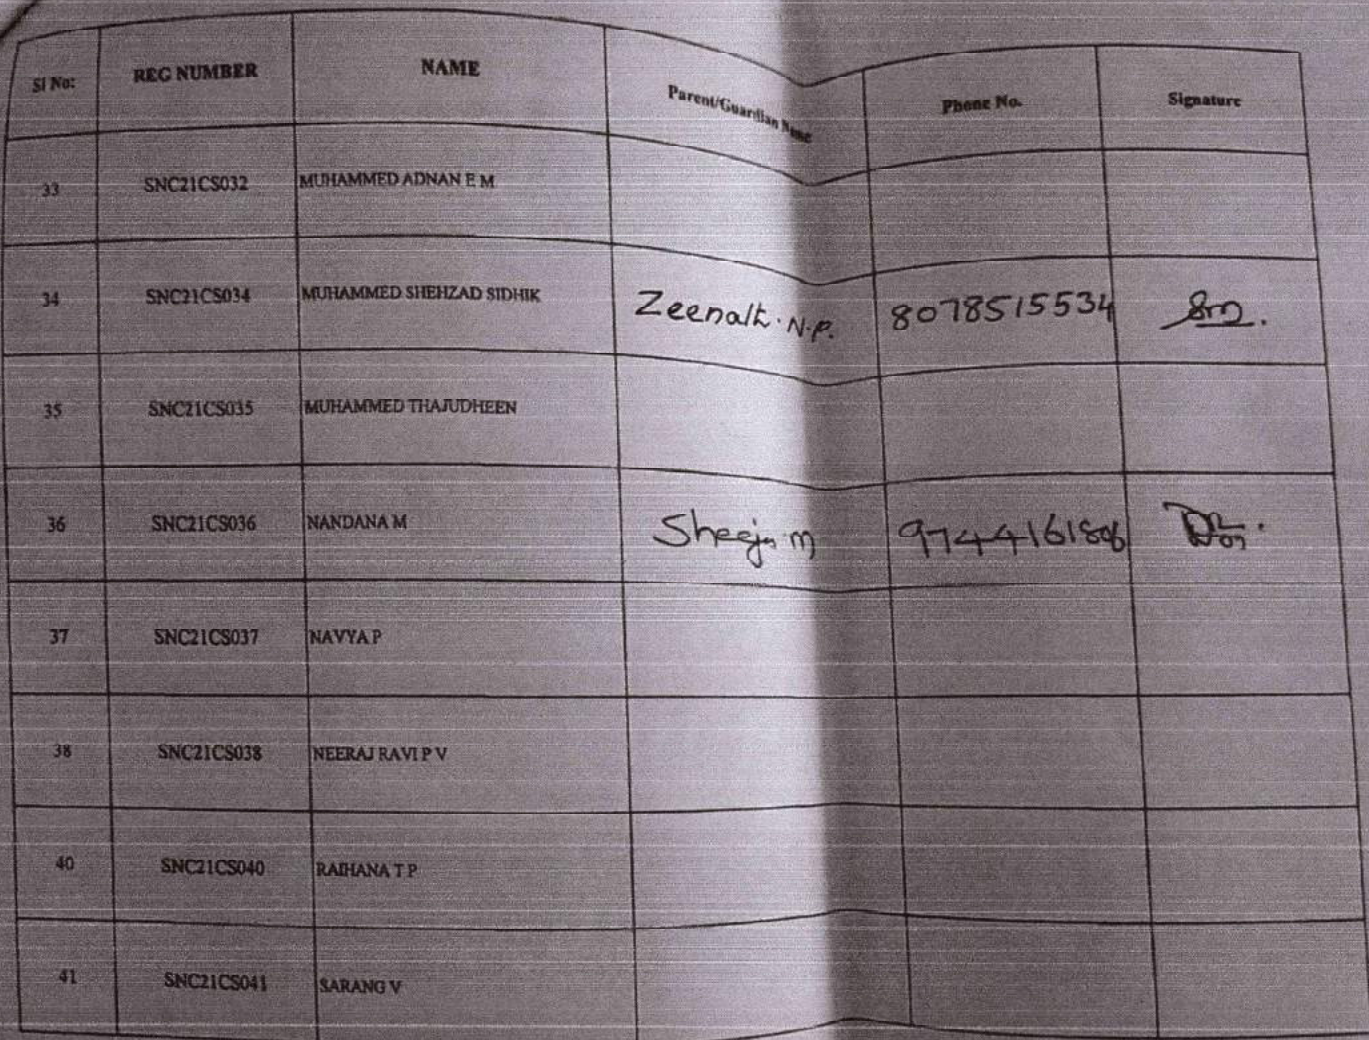 Sl No: REG NUMBER NAME Parent/Guardian Name Phone No. Signature
33 SNC21CS032 MUHAMMED ADNAN E M
34 SNC21CS034 MUHAMMED SHEHZAD SIDHIK Zeenath. N.P. 8078515534
35 SNC21CS035 MUHAMMED THAJUDHEEN
36 SNC21CS036 NANDANA M Sheeja M
37 SNC21CS037 NAVYA P
38 SNC21CS038 NEERAJ RAVI P V
40 SNC21CS040 RAIHANA T P
41 SNC21CS041 SARANG V